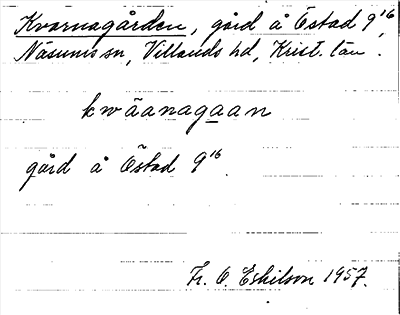 Kvarnagården, gård å Östad 9¹⁶,
Näsums sn, Villands hd, Krist. län.
kwäanagaan
gård å Östad 9¹⁶.
Fr. O. Eskilson 1957.